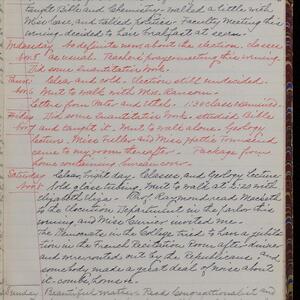 taught Bible and Chemistry. Walked a little with
Miss Case, and talked politics. Faculty Meeting this
evning, decided to have breakfast at seven.
Wednesday No definite news about the election. Classes
Nov 5 as usual. Teachers' prayermeeting this evening
Did some quantitative work.
Thurs. Clear and cold. Election still undecided.
Nov 6 Went to walk with Mrs. Ransom.
Letters from Pater and Ethel. 1:30 class examined.
Friday Did some Quantitative work. Studied Bible
Nov 7 and taught it. Went to walk alone. Geology
Lecture. Miss Fuller and Miss Hattie Townsend
came to my room tonight. Package from
home containing
Saturday Clear, bright day. Classes, and Geology Lecture
Nov 8 told glass tubing. Went to walk at 2:20 with
Elizabeth Eliza. Prof Raymond read Macbeth
to the Elocution Department in the Parlor this
evening and Miss Currier invited me.
The Democrats in the College tried to have a jubila-
tion in the French Recitation Room after dinner
and were routed out by the Republicans and
somebody made a great deal of noise about
it
Sunday Beautiful weather. Read Congregationalist and